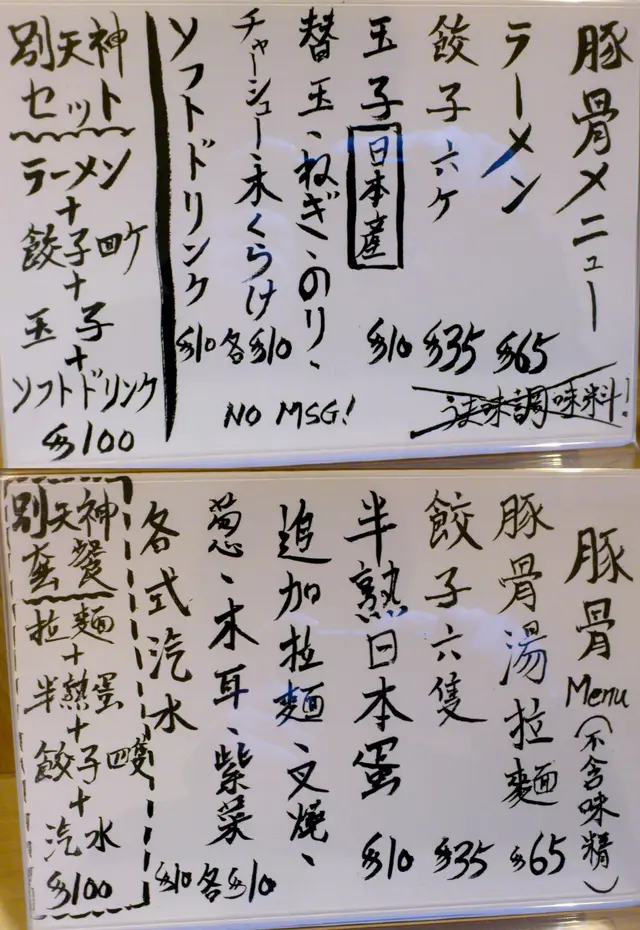 豚骨メニュー
ラーメン $65
餃子六ケ $35
玉子 日本産 $10
替玉、ねぎ、のり、
チャーシュー、木くらけ 各$10
ソフトドリンク $10
うま味調味料!
NO MSG!
別天神
セット
ラーメン
+
餃子四ケ
+
玉子
+
ソフトドリンク
$100
豚骨Menu(不含味精)
豚骨湯拉麵 $65
餃子六隻 $35
半熟日本蛋 $10
追加拉麵、叉燒、
葱、木耳、紫菜 各$10
各式汽水 $10
別天神
套餐
拉麵
+
半熟蛋
+
餃子四隻
+
汽水
$100